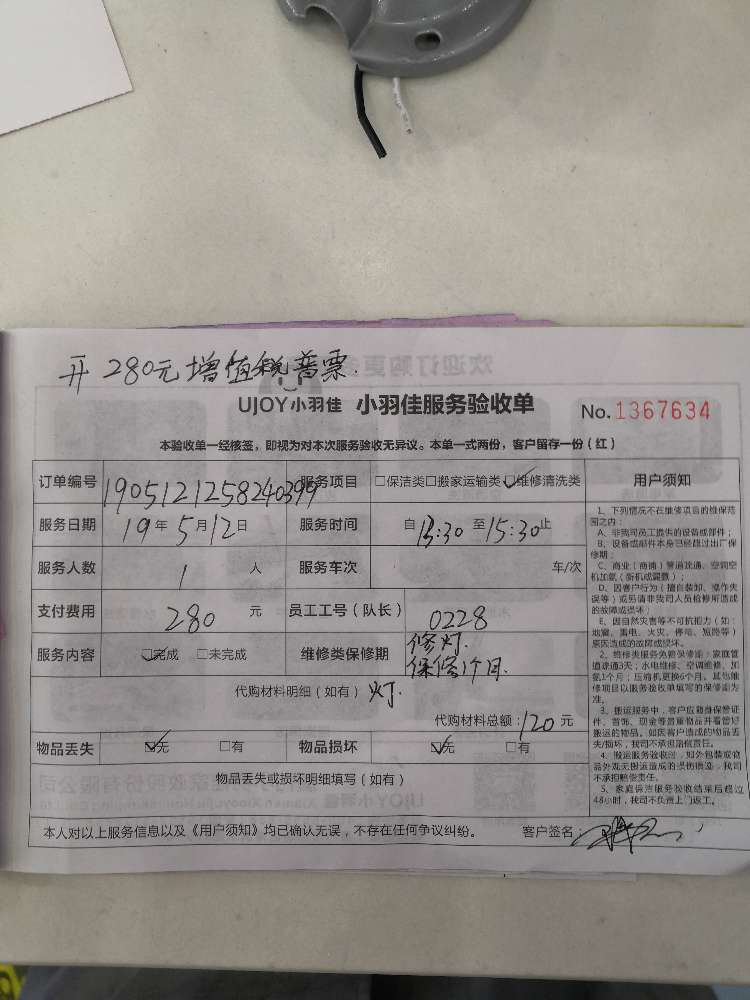 开 280元增值税普票.
UJOY小羽佳 小羽佳服务验收单 No.1367634
本验收单一经核签，即视为对本次服务验收无异议。本单一式两份，客户留存一份（红）
订单编号 1905121258240399 服务项目 □保洁类□搬家运输类☑维修清洗类
服务日期 19年5月12日 服务时间 自13:30至15:30止
服务人数 1 人 服务车次 车/次
支付费用 280 元 员工工号（队长） 0228
服务内容 ☑完成 □未完成 维修类保修期 修灯.
保修1个月.
代购材料明细（如有）灯.
代购材料总额：120元
物品丢失 ☑无 □有 物品损坏 ☑无 □有
物品丢失或损坏明细填写（如有）
本人对以上服务信息以及《用户须知》均已确认无误，不存在任何争议纠纷。 客户签名：
用户须知
1、下列情况不在维修项目的维保范
围之内：
A、非我司员工提供的设备或部件；
B、设备或部件本身已经超过出厂保
修期；
C、商业（商铺）管道疏通、空调空
机加氨（新机或漏氨）；
D、因客户行为（擅自装卸、操作失
误等）或另请非我司人员检修所造成
的故障或损坏；
E、因自然灾害等不可抗拒力（如：
地震、雷电、火灾、停电、短路等）
原因造成的故障或损坏。
2、维修类服务免费保修期：家庭管
道疏通3天；水电维修、空调维修、加
氨1个月；压缩机更换6个月。其他维
修项目以服务验收单填写的保修期为
准。
3、搬运服务中，客户应随身保管证
件、首饰、现金等贵重物品并看管好
搬运的物品。如因客户造成的物品丢
失/损坏，我司不承担赔偿责任。
4、搬运服务验收时，如外包装或物
品外观无搬运造成的损伤痕迹，我司
不承担赔偿责任。
5、家庭保洁服务验收结束后超过
48小时，我司不负责上门返工。